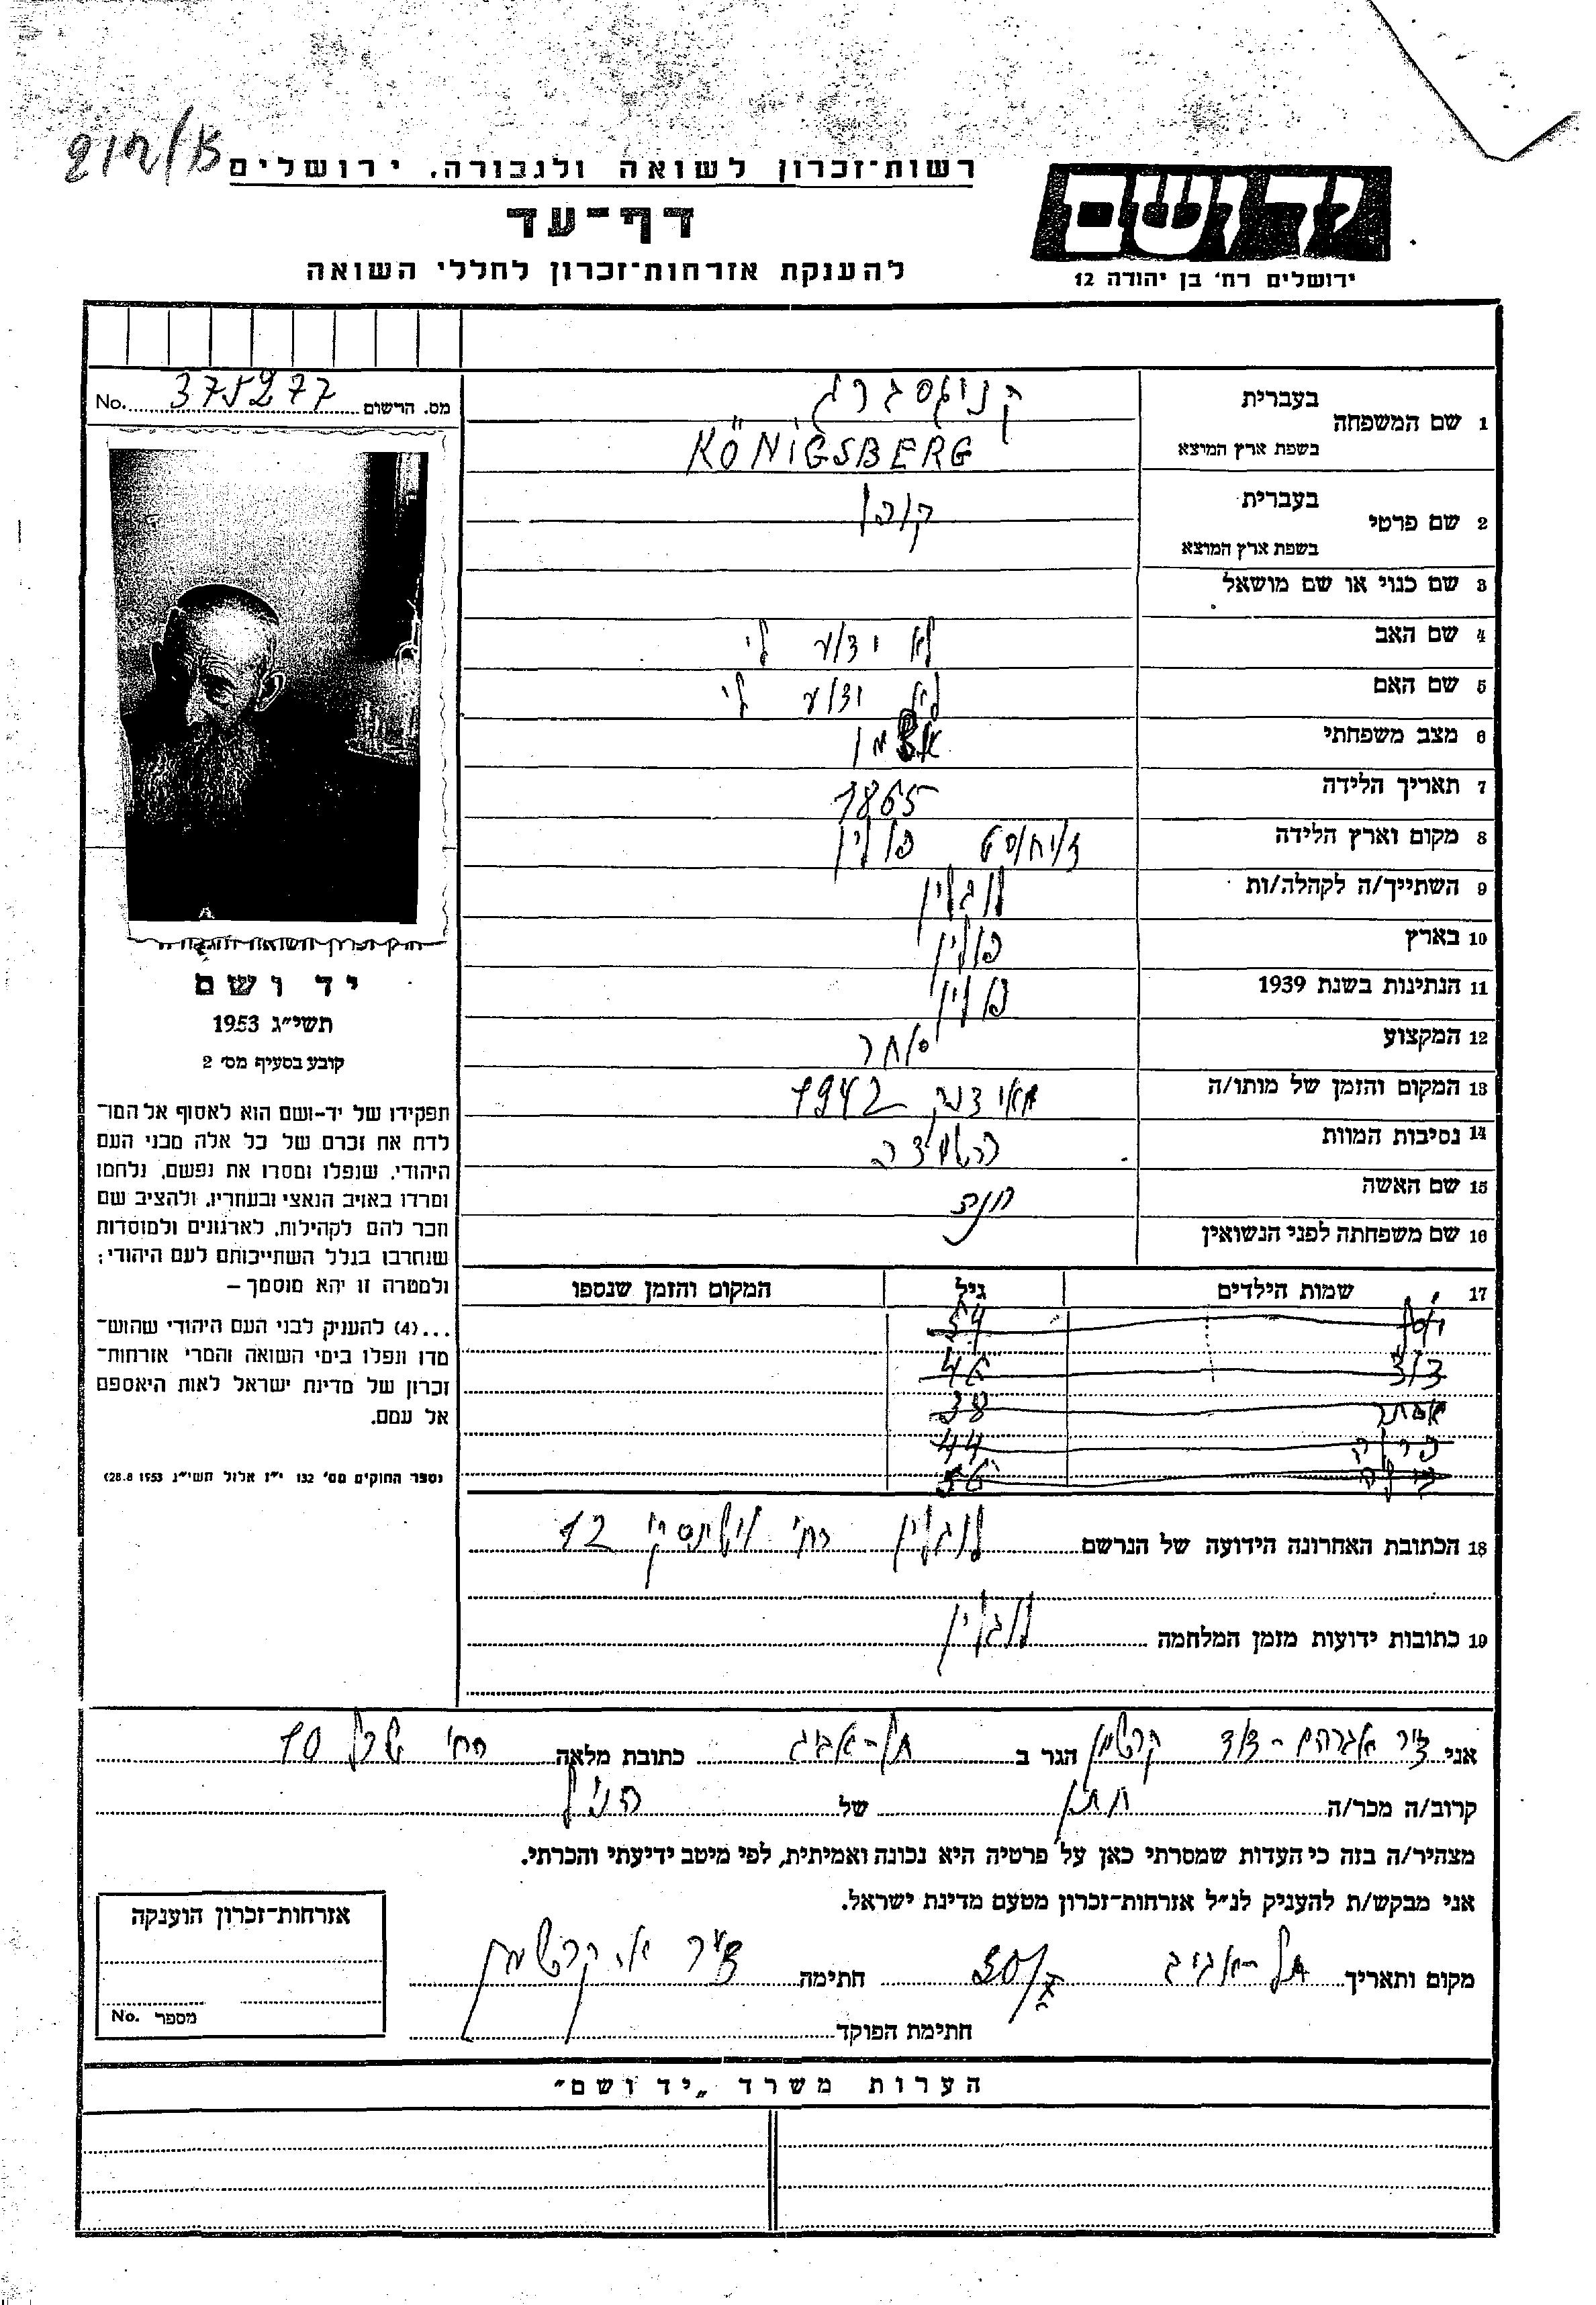 רשות־זכרון לשואה ולגבורה. ירושלים
דף־עד
להענקת אזרחות־זכרון לחללי השואה
יד ושם
ירושלים רח׳ בן יהודה 12
מס. הרישום 375277 No.
1 שם המשפחה
בעברית
בשפת ארץ המוצא KÖNIGSBERG
2 שם פרטי
בעברית
בשפת ארץ המוצא
3 שם כנוי או שם מושאל
4 שם האב לא ידוע לי
5 שם האם לא ידוע לי
6 מצב משפחתי
7 תאריך הלידה 1865
8 מקום וארץ הלידה פולין
9 השתייך/ה לקהלה/ות לובלין
10 בארץ פולין
11 הנתינות בשנת 1939 פולין
12 המקצוע סוחר
13 המקום והזמן של מותו/ה מאידנק 1942
14 נסיבות המוות
15 שם האשה
16 שם משפחתה לפני הנשואין
17 שמות הילדים גיל המקום והזמן שנספו
יוסף 54
46
אסתר 38
44
56
18 הכתובת האחרונה הידועה של הנרשם לובלין רח׳ 12
19 כתובות ידועות מזמן המלחמה לובלין
יד ושם
תשי״ג 1953
קובע בסעיף מס׳ 2
תפקידו של יד-ושם הוא לאסוף אל המו־
לדת את זכרם של כל אלה מבני העם
היהודי, שנפלו ומסרו את נפשם, נלחמו
ומרדו באויב הנאצי ובעוזריו, ולהציב שם
וזכר להם לקהילות, לארגונים ולמוסדות
שנחרבו בגלל השתייכותם לעם היהודי;
ולמטרה זו יהא מוסמך –
...(4) להעניק לבני העם היהודי שהוש־
מדו ונפלו בימי השואה והמרי אזרחות־
זכרון של מדינת ישראל לאות היאספם
אל עמם.
(ספר החוקים מס׳ 132 י״ז אלול תשי״ג 28.8 1953)
אני דר אברהם-דוד קרטמן הגר ב תל-אביב כתובת מלאה רח׳ 10
קרוב/ה מכר/ה חתן של הנ״ל
מצהיר/ה בזה כי העדות שמסרתי כאן על פרטיה היא נכונה ואמיתית, לפי מיטב ידיעתי והכרתי.
אני מבקש/ת להעניק לנ״ל אזרחות־זכרון מטעם מדינת ישראל.
מקום ותאריך תל-אביב חתימה
חתימת הפוקד
אזרחות־זכרון הוענקה
מספר No.
הערות משרד „יד ושם״